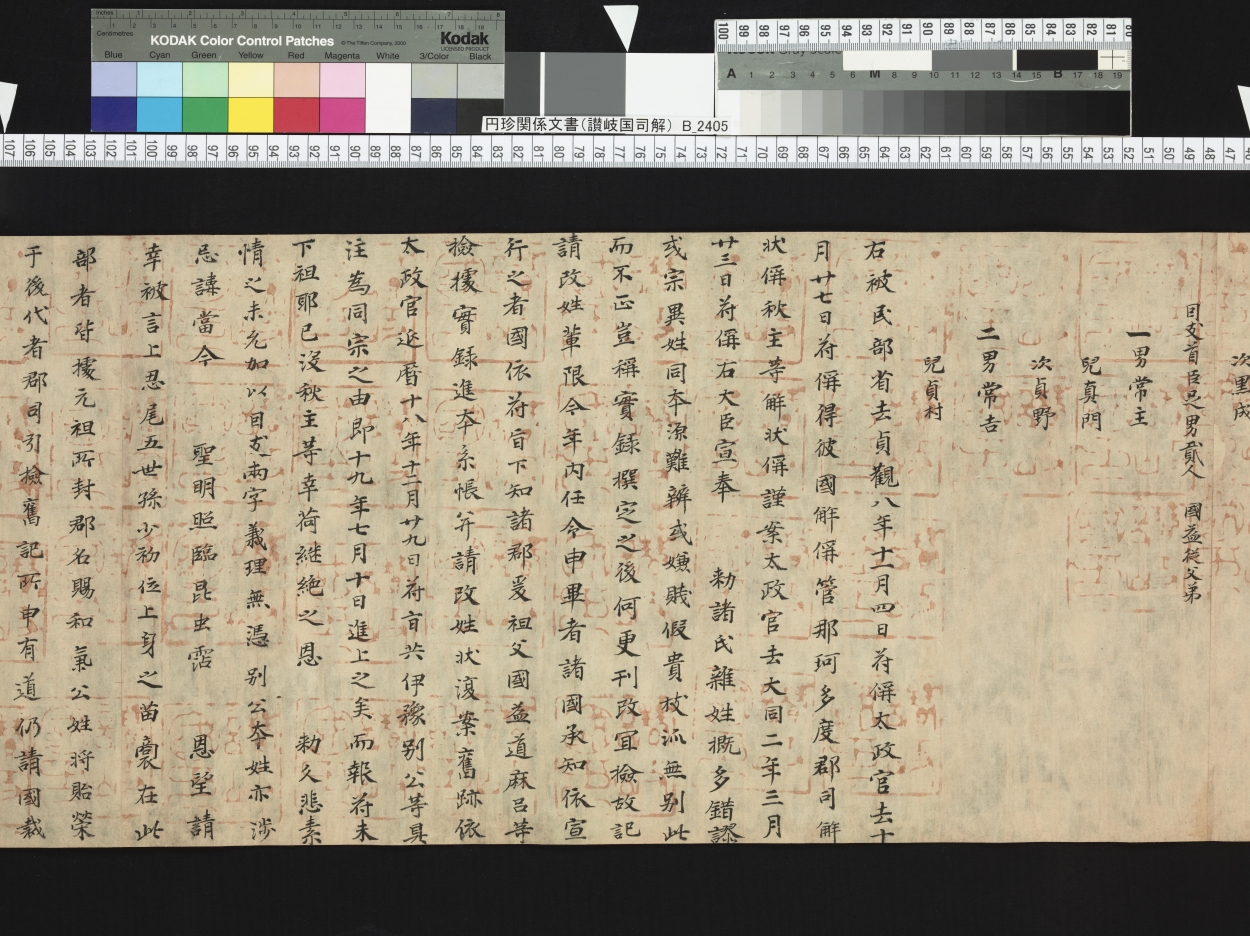 Inches
Centimetres
KODAK Color Control Patches
© The Tiffen Company, 2000
Kodak
LICENSED PRODUCT
Blue Cyan Green Yellow Red Magenta White 3/Color Black
A 1 2 3 4 5 6 M 8 9 10 11 12 13 14 15 B 17 18 19
円珍関係文書(讃岐国司解) B_2405
次黒成
因支首臣足男貳人 國益従父弟
一男常主
兒真門
次貞野
二男常吉
兒貞村
右被民部省去貞觀八年十一月四日符偁太政官去十
月廿七日符偁得彼國解偁管那珂多度郡司解
状偁秋主等解状偁謹案太政官去大同二年三月
廿三日符偁右大臣宣奉 勅諸氏雜姓概多錯謬
或宗異姓同本源難辨或嫌賤假貴枝派無別此
而不正豈稱實録撰定之後何更刊改宜檢故記
請改姓輩限今年内任令申畢者諸國承知依宣
行之者國依符旨下知諸郡爰祖父國益道麻呂等
檢據實録進本系帳并請改姓状復案舊跡依
太政官延暦十八年十二月廿九日符旨共伊豫別公等具
注為同宗之由即十九年七月十日進上之矣而報符未
下祖耶已沒秋主等幸荷継絶之恩 勅久悲素
情之未允加以因支兩字義理無憑別公本姓亦渉
忌諱當今 聖明照臨昆虫霑 恩望請
幸被言上忍尾五世孫少初位上身之苗裔在此
部者皆據元祖所封郡名賜和氣公姓將貽榮
于後代者郡司引檢舊記所申有道仍請國裁